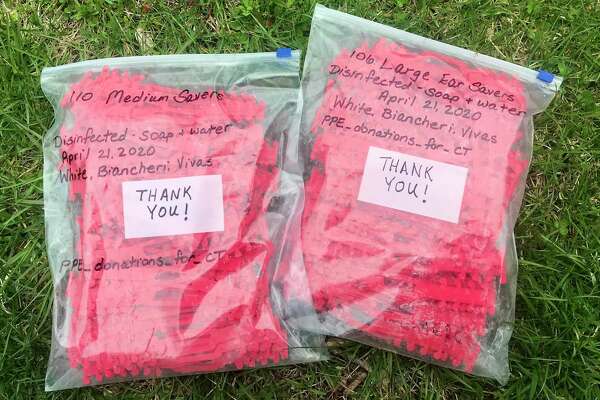 110 Medium Savers
Disinfected - soap + water
April 21, 2020
White, Biancheri, Vivas
THANK
YOU!
PPE_donations_for_CT
106 Large Ear Savers
Disinfected - soap + water
April 21, 2020
White, Biancheri, Vivas
PPE_donations_for_CT
THANK
YOU!